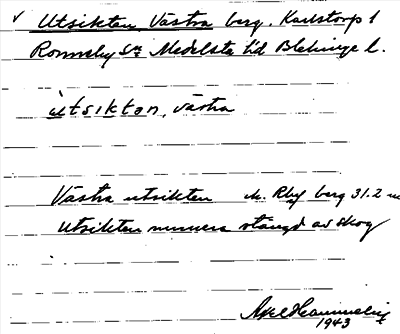 √ Utsikten, Västra berg. Karlstorp 1
Ronneby Sn Medelsta hd Blekinge l.
ùtsiktən, västra
Västra utsikten N. Rby berg 31.2 m
Utsikten numera stängd av skog
Axel
1943